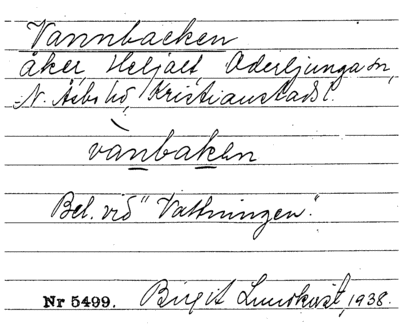 Vannbacken
åker, Heljalt, Oderljunga sn,
N. Åsbo hd, Kristianstads l.
vànbaken
Bel. vid "Vattningen".
Nr 5499. Birgit Lundkvist, 1938.